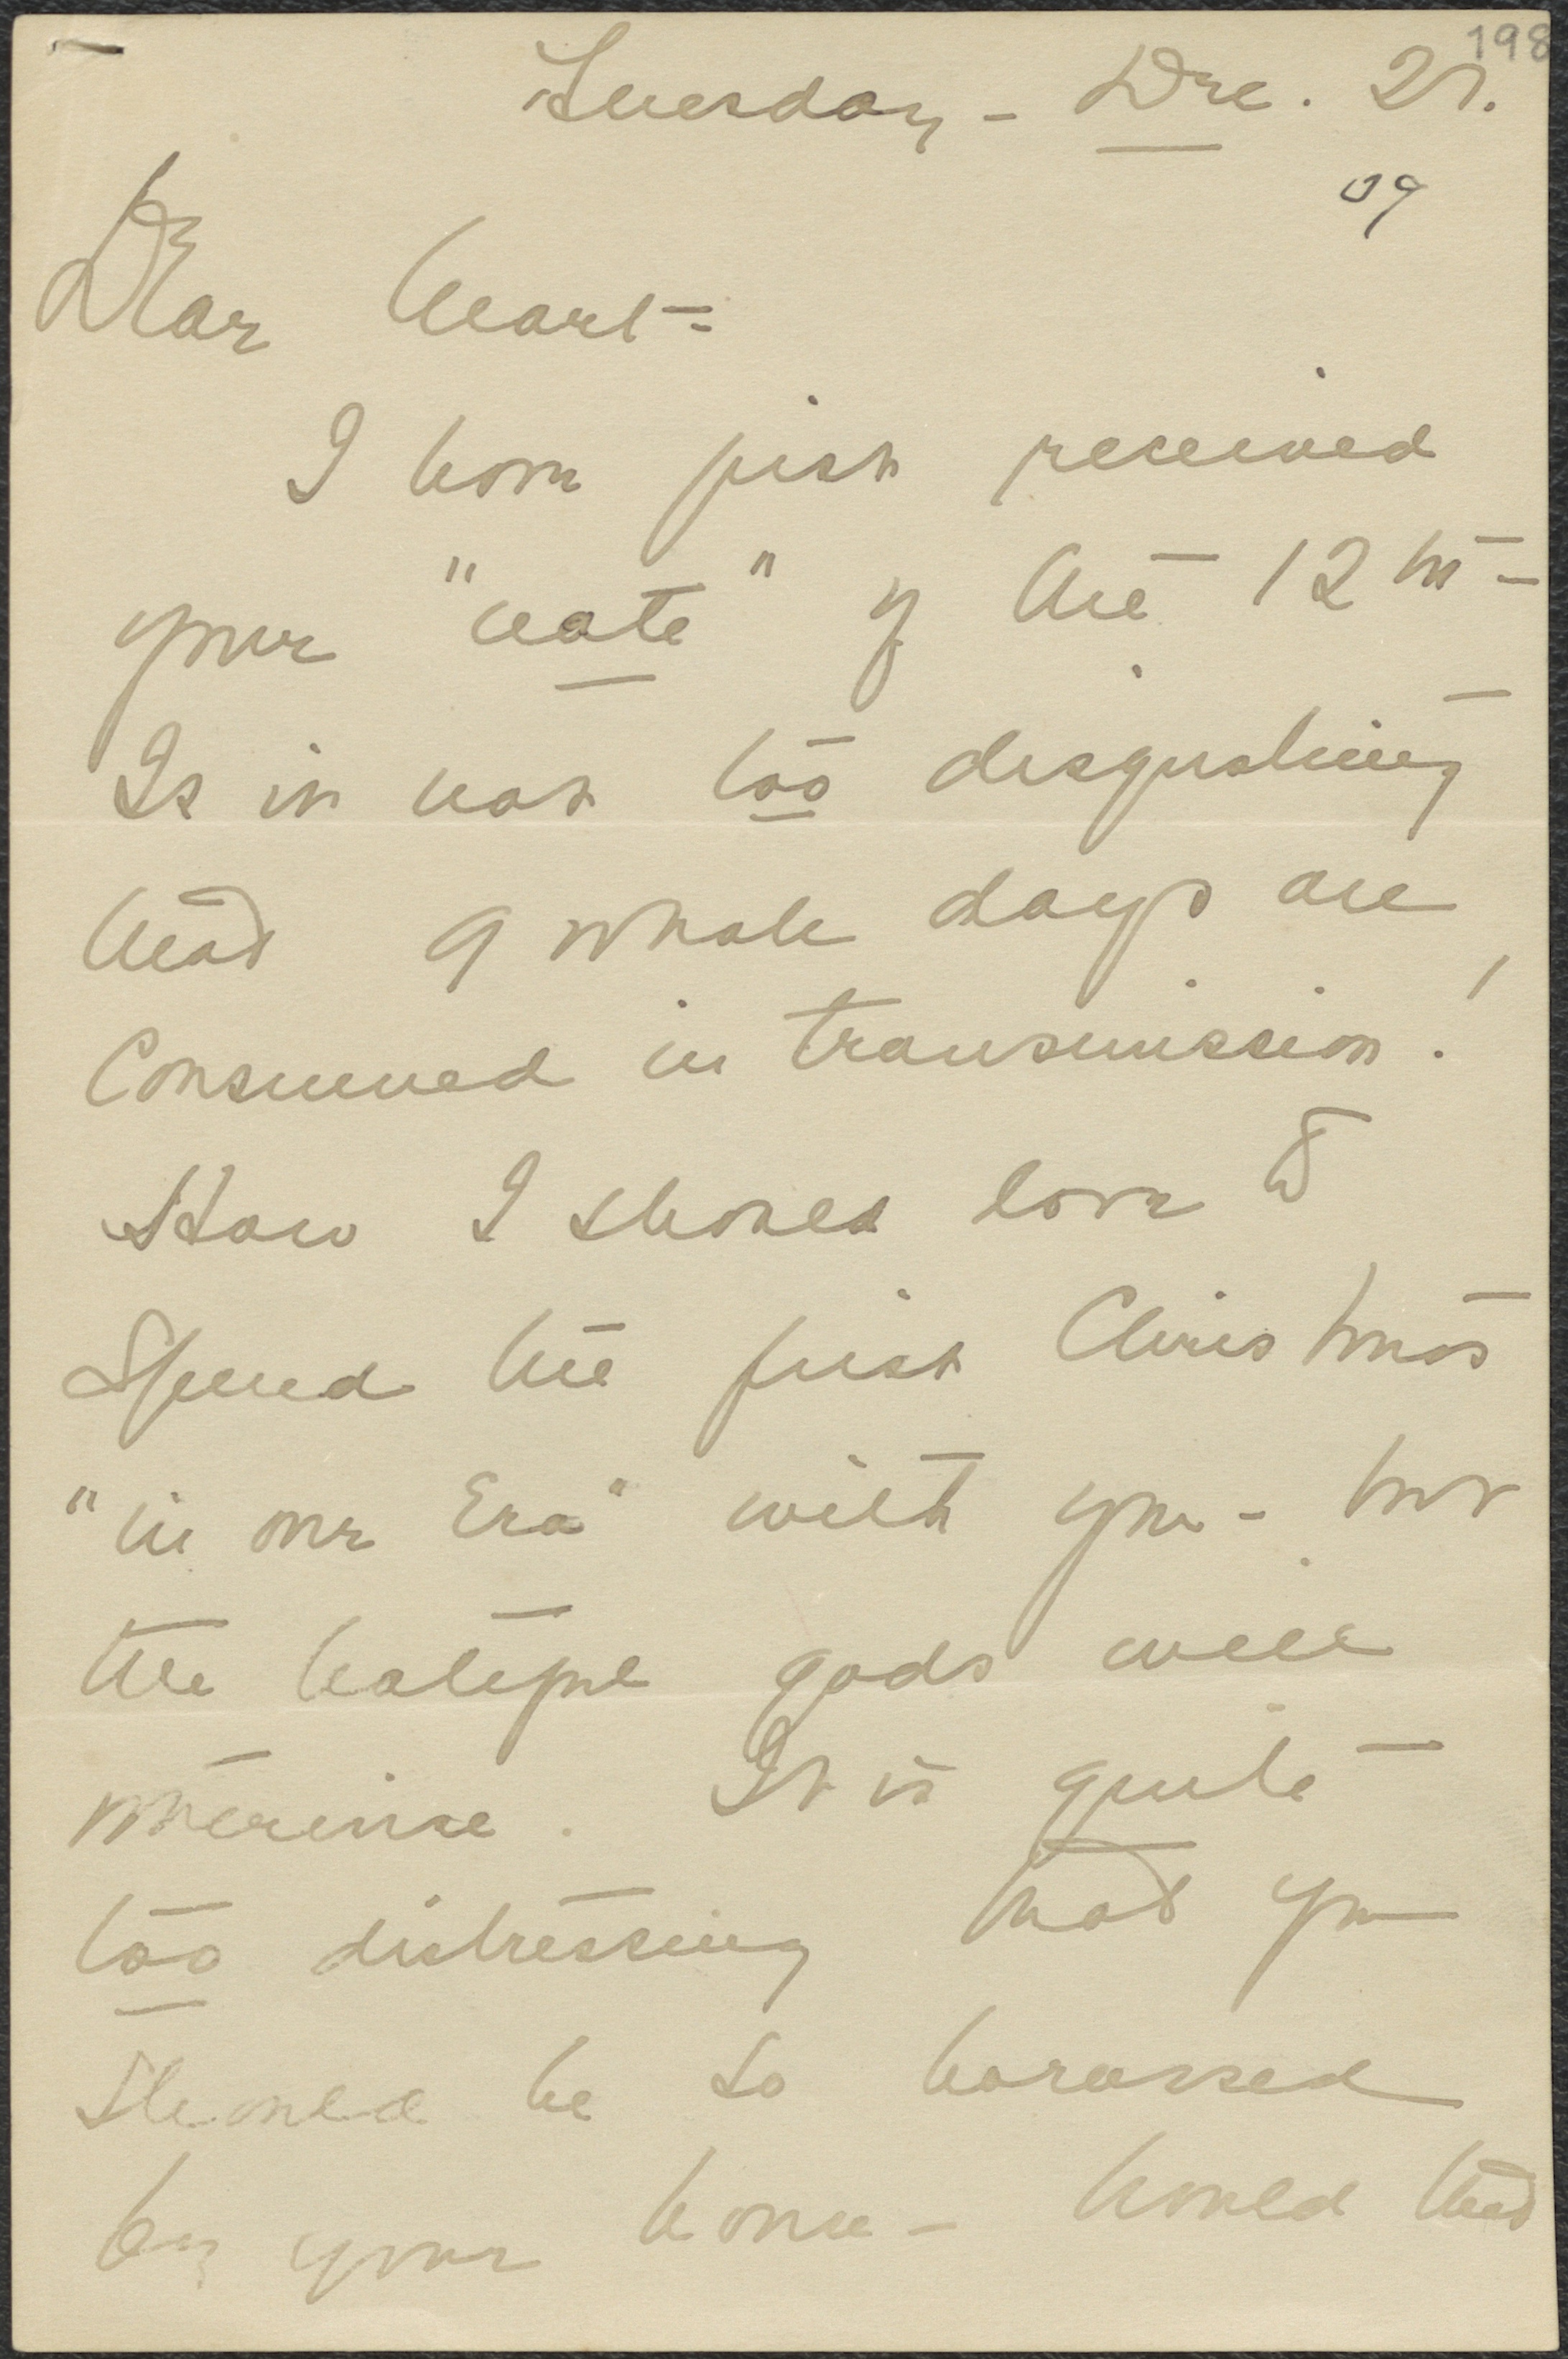 198
Tuesday - Dec. 21.
09
Dear heart -
I have just received
your "note" of the 12th -
Is it not too disgusting
that 9 whole days are
consumed in transmission!
How I should love to
Spend the first Christmas
"in our Era" with you - but
the hateful gods will
otherwise. It is quite
too distressing that you
should be so harassed
by your house - Would that